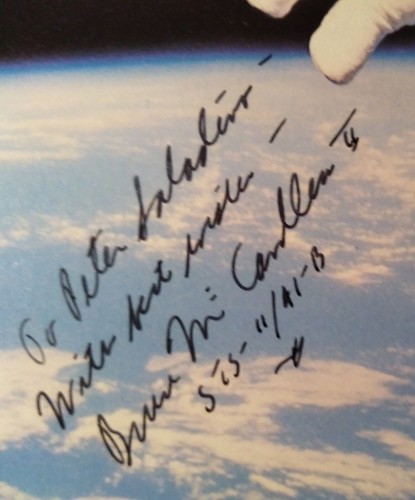 To Peter Saladino -
With best wishes -
Bruce McCandless II
STS-11/41-B